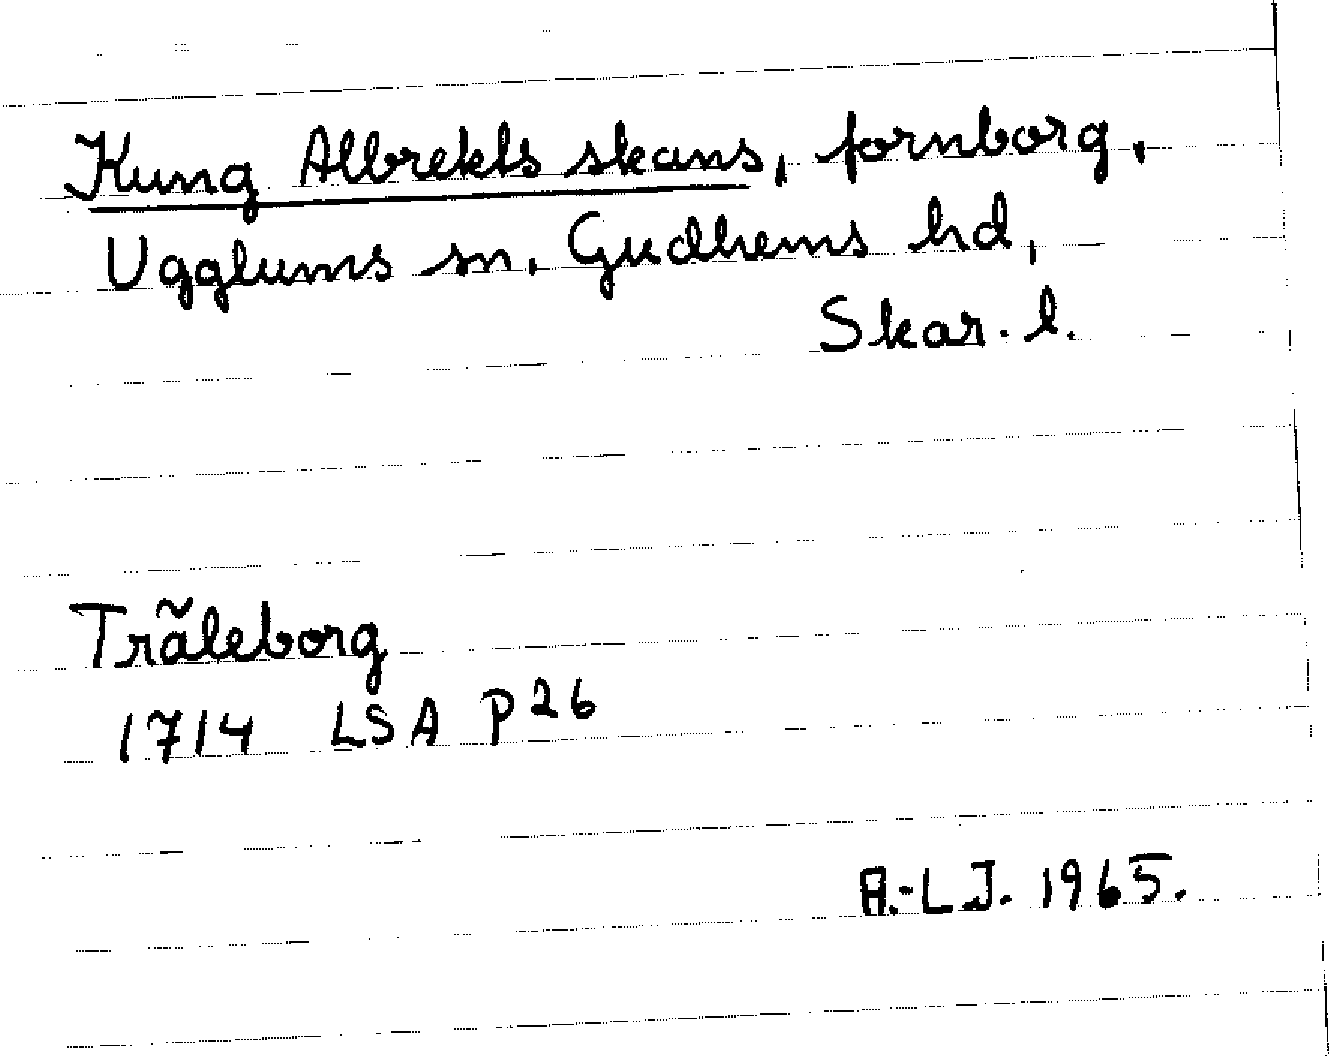 Kung Albrekts skans, fornborg,
Ugglums sn, Gudhems hd,
Skar. l.
Trãleborg
1714 LSA P 26
A.-L.J. 1965.